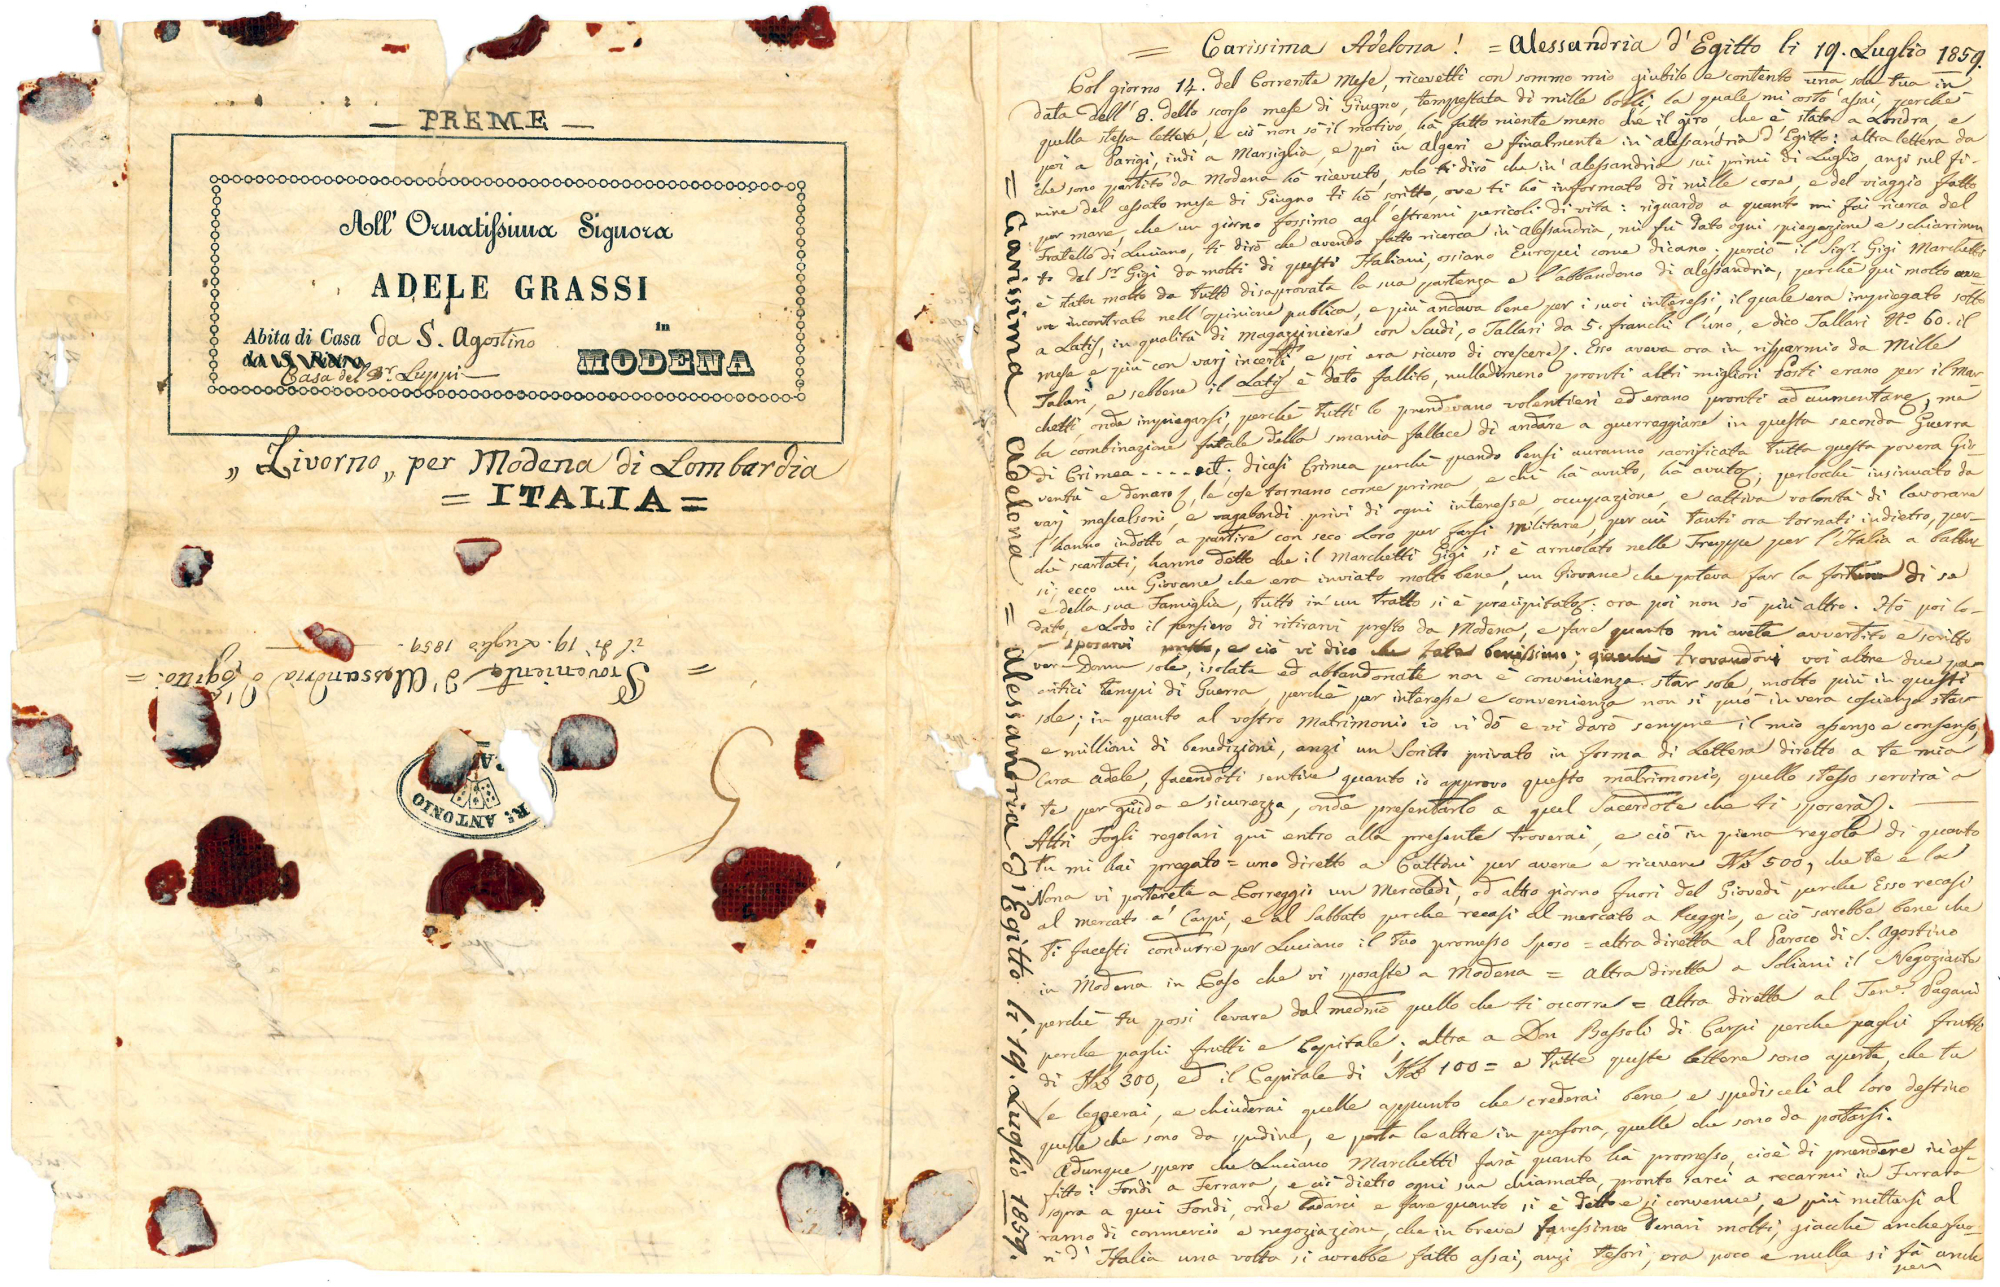 — PREME —
All' Ornatissima Signora
ADELE GRASSI
Abita di Casa da S. Agostino
in
MODENA
Casa del Dr. Luppi —
„ Livorno „ per Modena di Lombardia
= ITALIA =
= Proveniente d'Alessandria d'Egitto: =
il dì 19. Luglio 1859.
R. ANTONIO
= Carissima Adelona! = Alessandria d'Egitto li 19. Luglio 1859.
Col giorno 14. del Corrente Mese, ricevetti con sommo mio giubilo e contento una sola tua in
data dell' 8. dello scorso mese di Giugno, tempestata di mille bolli, la quale mi costò assai, perchè
quella stessa lettera, e ciò non sò il motivo, hà fatto niente meno che il giro, che è stata a Londra, e
poi a Parigi, indi a Marsiglia, e poi in Algeri e finalmente in Alessandria d'Egitto: altra lettera da
che sono partito da Modena hò ricevuto, solo ti dirò che in Alessandria sui primi di Luglio, anzi sul fi-
nire del cessato mese di Giugno ti hò scritto, ove ti hò informato di mille cose, e del viaggio fatto
per mare, che un giorno fossimo agl'estremi pericoli di vita: riguardo a quanto mi fai ricerca del
Fratello di Luciano, ti dirò che avendo fatto ricerca in Alessandria, mi fu dato ogni spiegazione e schiarimen
to del Sr. Gigi da molti di questi Italiani, ossiano Europei come dicano, perciò il Sigr. Gigi Marchetti
è stata molto da tutti disaprovata la sua partenza e l'abbandono di Alessandria, perchè qui molto ave
va incontrato nell'opinione publica, e più andava bene per i suoi interessi, il quale era impiegato sotto
a Latis, in qualità di magazziniere con Scudi, o Tallari da 5. franchi l'uno, e dico Tallari No. 60. il
mese e più con varj incerti e poi era sicuro di crescere. Esso aveva ora in risparmio da Mille
Talari, e sebbene il Latis è dato fallito, nulladimeno pronti altri migliori Posti erano per il Mar
chetti, onde impiegarsi, perchè tutti lo prendevano volentieri ed erano pronti ad aumentare, ma
la combinazione fatale della smania fallace di andare a guerreggiare in questa seconda Guerra
di Crimea .... dicasi Crimea perchè quando bensi avranno sacrificata tutta questa povera Gio
ventù e denaro, le cose tornano come prima, e chi hà avuto, hà avuto; perlocchè insinuato da
varj mascalsoni, e vagabondi privi di ogni interesse, occupazione, e cattiva volontà di lavorare
l'hanno indotto a partire con seco Loro per farsi Militare, per cui tanti ora tornati indietro, per-
chè scartati, hanno detto che il Marchetti Gigi si è arruolato nelle Truppe per l'Italia a batter
si; ecco un Giovane che era inviato molto bene, un Giovane che poteva far la fortuna di se
e della sua Famiglia, tutto in un tratto si è precipitato: ora poi non sò più altro. Hò poi lo-
dato, e Lodo il pensiero di ritirarvi presto da Modena, e fare quanto mi avete avvertito e scritto
sposarvi presto, e ciò vi dico che fate benissimo; giacchè trovandovi voi altre due po-
vere Donne sole, isolate ed abbandonate non è convenienza star sole, molto più in questi
critici tempi di Guerra, perchè per interesse e convenienza non si può in vera coscienza star
sole; in quanto al vostro Matrimonio io vi dò e vi darò sempre il mio assenso e consenso,
e millioni di benedizioni, anzi un Scritto privato in forma di Lettera diretto a te mia
Cara Adele, facendoti sentire quanto io approvo questo matrimonio, quello stesso servirà a
te per guida e sicurezza, onde presentarlo a quel Sacerdote che ti sposerà. —
Altri Fogli regolari qui entro alla presente troverai, e ciò in piena regola di quanto
tu mi hai pregato = uno diretto a Cattini per avere e ricevere 500, che te e la
Nona vi porterete a Correggio un Mercoledì, od altro giorno fuori del Giovedì perchè Esso recasi
al mercato a Carpi, e al Sabbato perchè recasi al mercato a Reggio, e ciò sarebbe bene che
ti facesti condurre per Luciano il tuo promesso Sposo = altra diretta al Paroco di S. Agostino
in Modena in Caso che vi sposaste a Modena = altra diretta a Soliani il Negoziante
perchè tu possi levare dal medmo quello che ti occorre = altra diretta al Tene. Pagani
perchè paghi frutti e Capitale; altra a Don Bassoli di Carpi perchè paghi frutti
di 300, ed il Capitale di 100 = e tutte queste lettere sono aperte, che tu
le leggerai, e chiuderai quelle appunto che crederai bene, e spedisceli al loro destino
quelle che sono da spedire, e porta le altre in persona, quelle che sono da portarsi.
Adunque spero che Luciano Marchetti farà quanto hà promesso, cioè di prendere in af-
fitto i Fondi a Ferrara, e ciò dietro ogni sua chiamata, pronto sarei a recarmi in Ferrara
sopra a quei Fondi, onde badarci e fare quanto si è detto e si convenne, e più mettersi al
ramo di commercio e negoziazione, che in breve faressimo denari molti, giacchè anche fuo-
ri d'Italia una volta si avrebbe fatto assai, anzi tesori, ora poco e nulla si fà anche
per
= Carissima Adelona = Alessandria d'Egitto li 19. Luglio 1859.